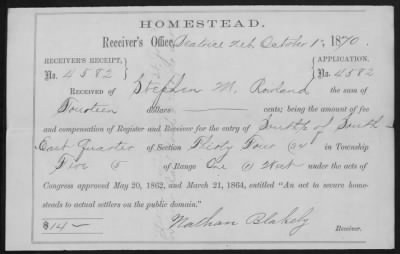 HOMESTEAD.
Receiver's Office, Beatrice Neb. October 1st, 1870.
RECEIVER'S RECEIPT, } { APPLICATION,
No. 4582 } { No. 4582
RECEIVED OF Stephen M. Rowland the sum of
Fourteen dollars cents; being the amount of fee
and compensation of Register and Receiver for the entry of South ½ of South
East Quarter of Section Thirty Four 34 in Township
Five 5 of Range One (1) West under the acts of
Congress approved May 20, 1862, and March 21, 1864, entitled "An act to secure home-
steads to actual settlers on the public domain."
$14— Nathan Blakely
Receiver.